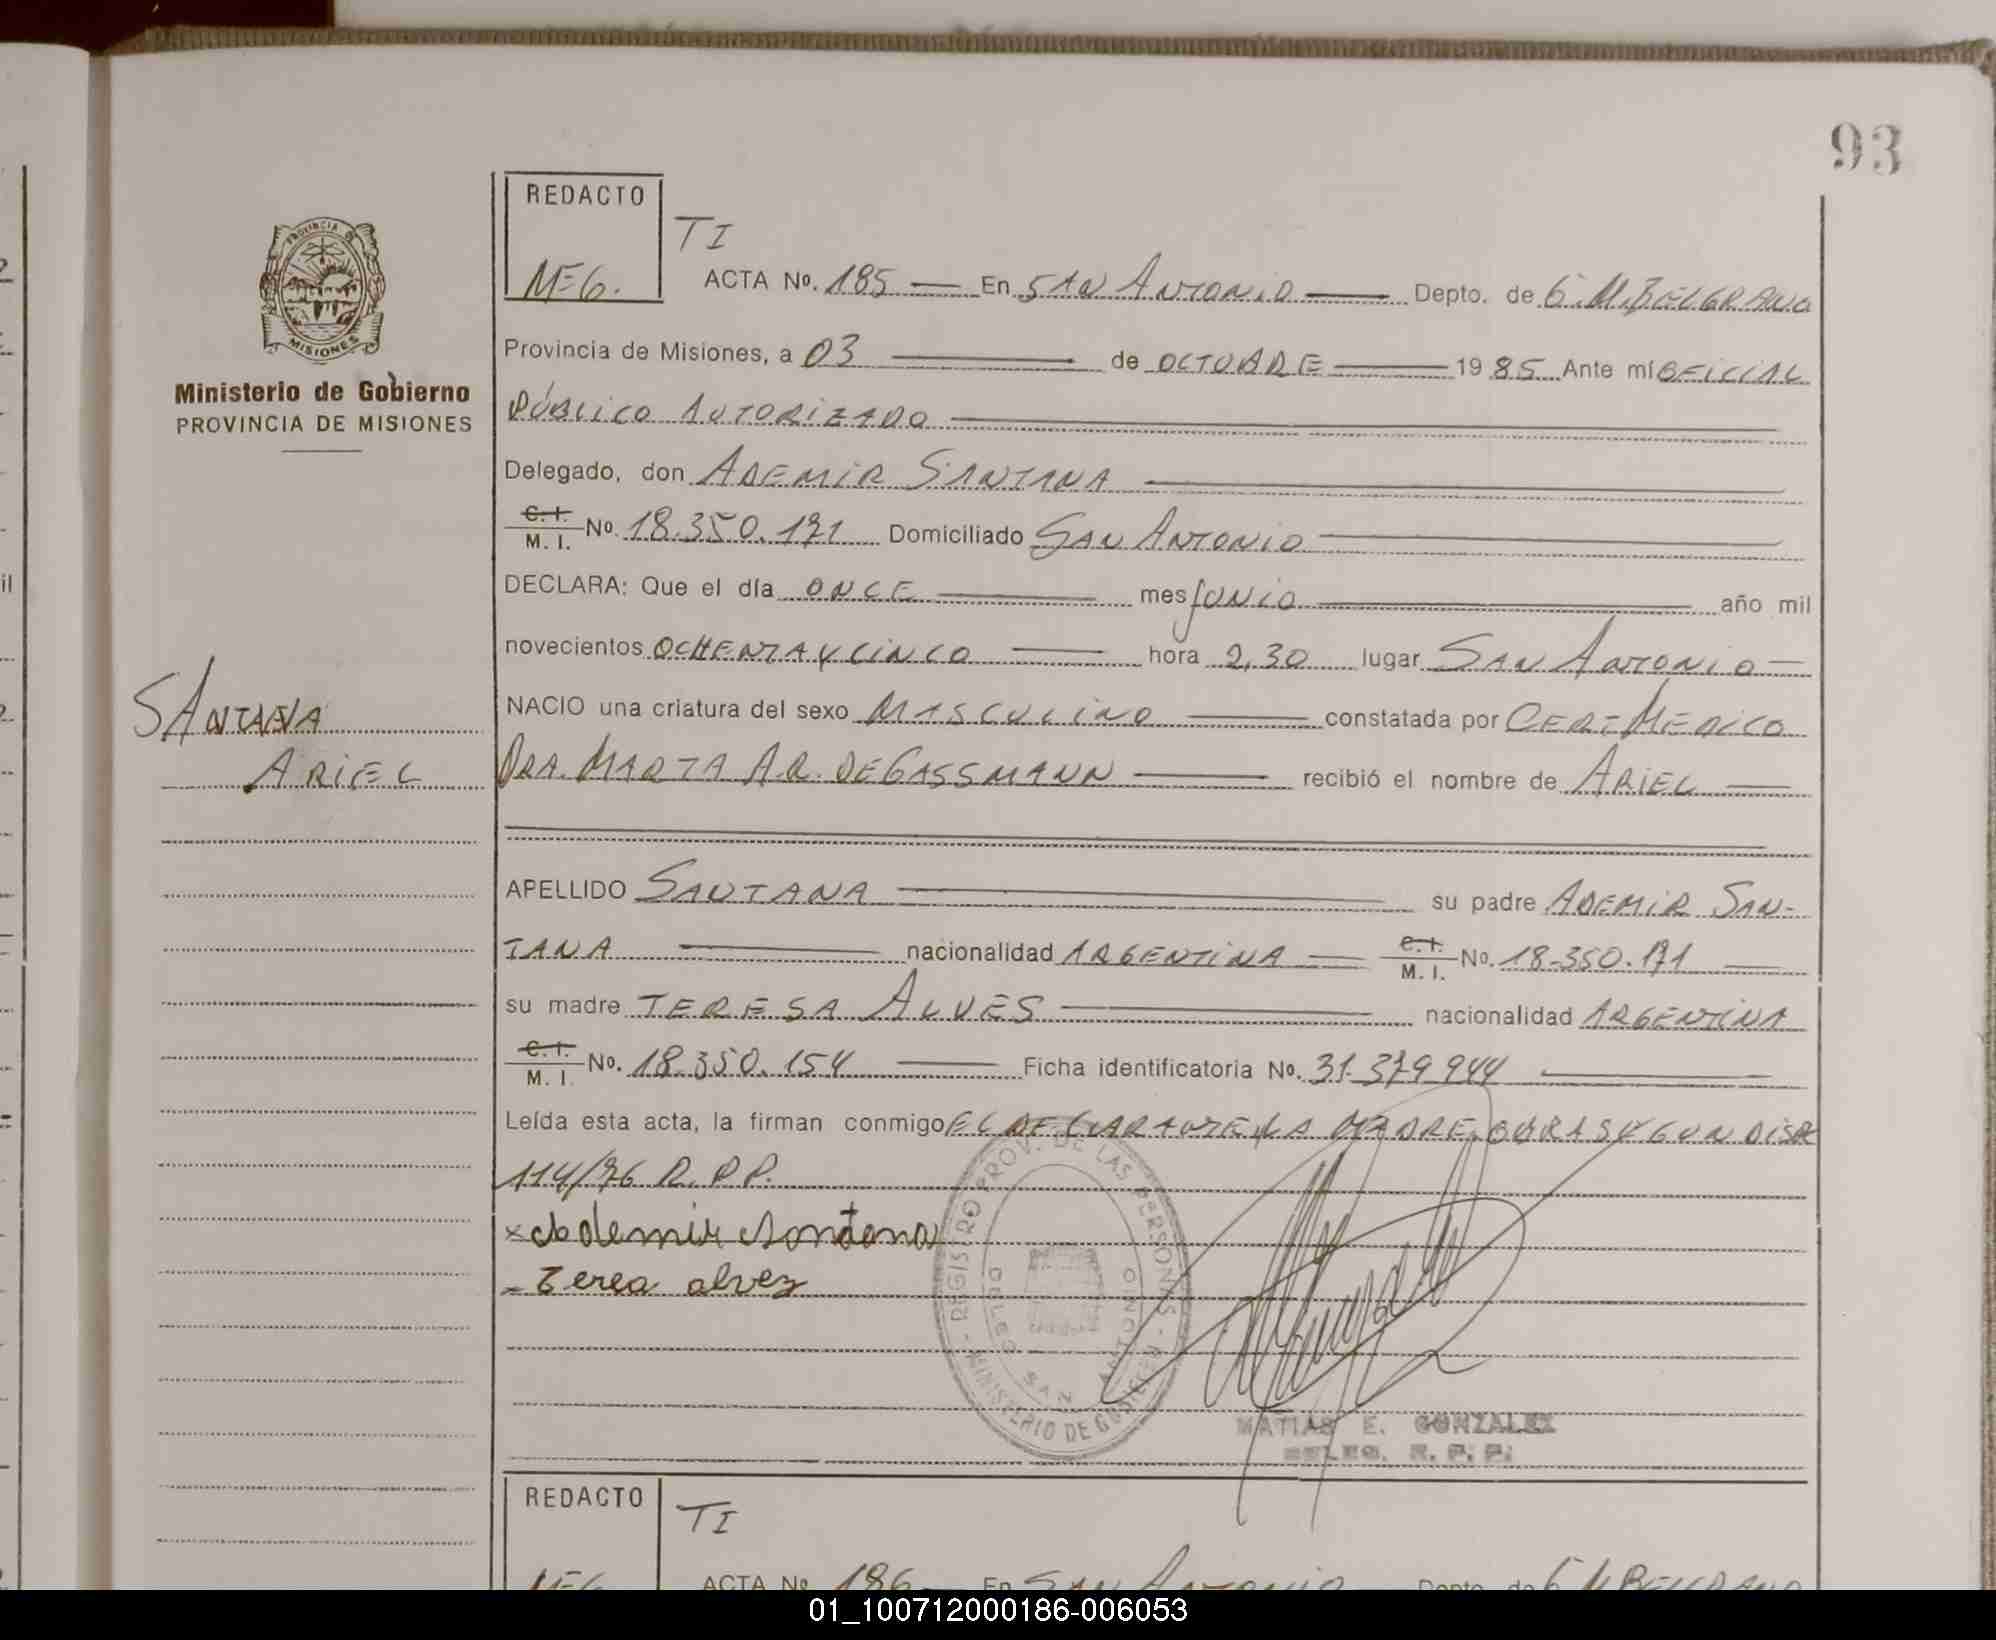 93
REDACTO
M=G.
TI
ACTA No. 185 — En SAN ANTONIO — Depto. de G.M.BELGRANO
PROVINCIA DE
MISIONES
Ministerio de Gobierno
PROVINCIA DE MISIONES
Provincia de Misiones, a 03 — de OCTUBRE — 1985 Ante mí OFICIAL
PÚBLICO AUTORIZADO —
Delegado, don ADEMIR SANTANA —
C. I.
M. I. No. 18.350.171 Domiciliado SAN ANTONIO —
DECLARA: Que el día ONCE — mes JUNIO — año mil
novecientos OCHENTA Y CINCO — hora 2,30 lugar SAN ANTONIO —
SANTANA
ARIEL
NACIO una criatura del sexo MASCULINO — constatada por CERT MEDICO
DRA. MARTA A.R. DE GASSMANN — recibió el nombre de ARIEL —
APELLIDO SANTANA — su padre ADEMIR SAN-
TANA — nacionalidad ARGENTINA — C. I.
M. I. No. 18.350.171 —
su madre TERESA ALVES — nacionalidad ARGENTINA
C. I.
M. I. No. 18.350.154 — Ficha identificatoria No. 31.379944 —
Leída esta acta, la firman conmigo EL DECLARANTE, LA MADRE, OBRA SEGUN DISP.
114/76 R.P.P.
x Ademir Santana
- Terea alvez
REGISTRO PROV. DE LAS PERSONAS
MINISTERIO DE GOBIERNO
DELEG. SAN ANTONIO
MATIAS E. GONZALEZ
DELEG. R. P. P.
REDACTO
M=G
TI
ACTA No 186 — En SAN ANTONIO — Depto. de G.M.BELGRANO
il
01_100712000186-006053